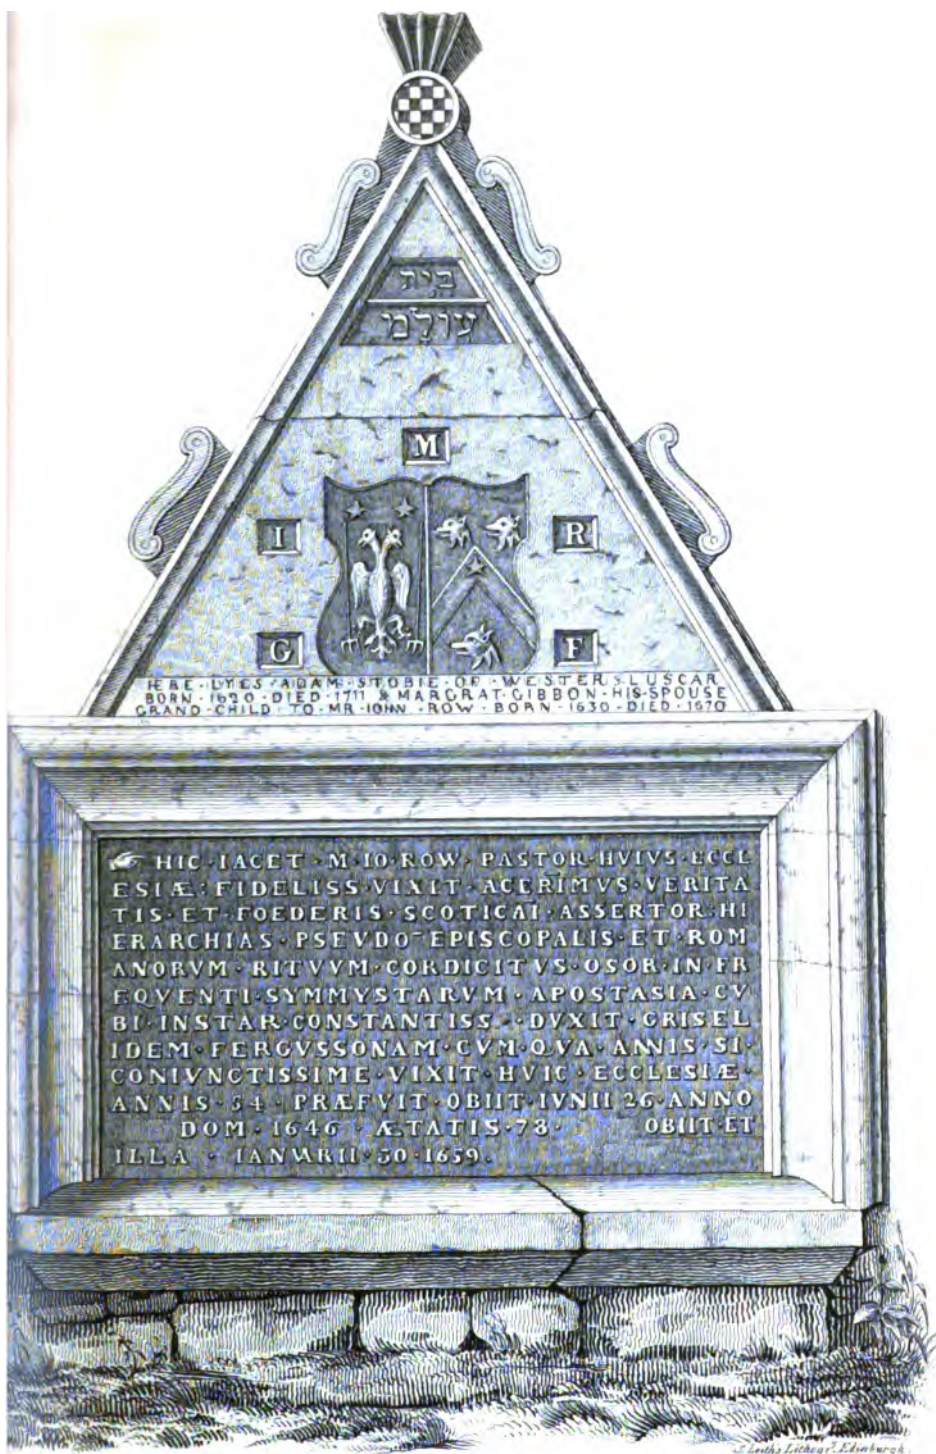 בית
עולמי
M
I R
G F
HERE · LYES · ADAM · STOBIE · OF · WESTER · LUSCAR
BORN · 1620 · DIED · 1711 & MARGRAT · GIBBON · HIS · SPOUSE
GRAND · CHILD · TO · MR · IOHN · ROW · BORN · 1630 · DIED · 1670
☞ HIC · IACET · M · IO · ROW · PASTOR · HVIVS · ECCL
ESIÆ : FIDELISS · VIXIT · ACERIMVS · VERITA
TIS · ET · FOEDERIS · SCOTICAI · ASSERTOR : HI
ERARCHIAS · PSEVDO-EPISCOPALIS · ET · ROM
ANORVM · RITVVM · CORDICITVS · OSOR · IN · FR
EQVENTI · SYMMYSTARVM · APOSTASIA · CV
BI · INSTAR · CONSTANTISS · DVXIT · GRISEL
IDEM · FERGVSSONAM · CVM · QVA · ANNIS · 51 ·
CONIVNCTISSIME · VIXIT · HVIC · ECCLESIÆ ·
ANNIS · 54 · PRÆFVIT · OBIIT · IVNII 26 · ANNO
DOM · 1646 · ÆTATIS · 78 · OBIIT · ET
ILLA · IANVARII · 30 · 1659 .
Leiths Lithogr. Edinburgh.